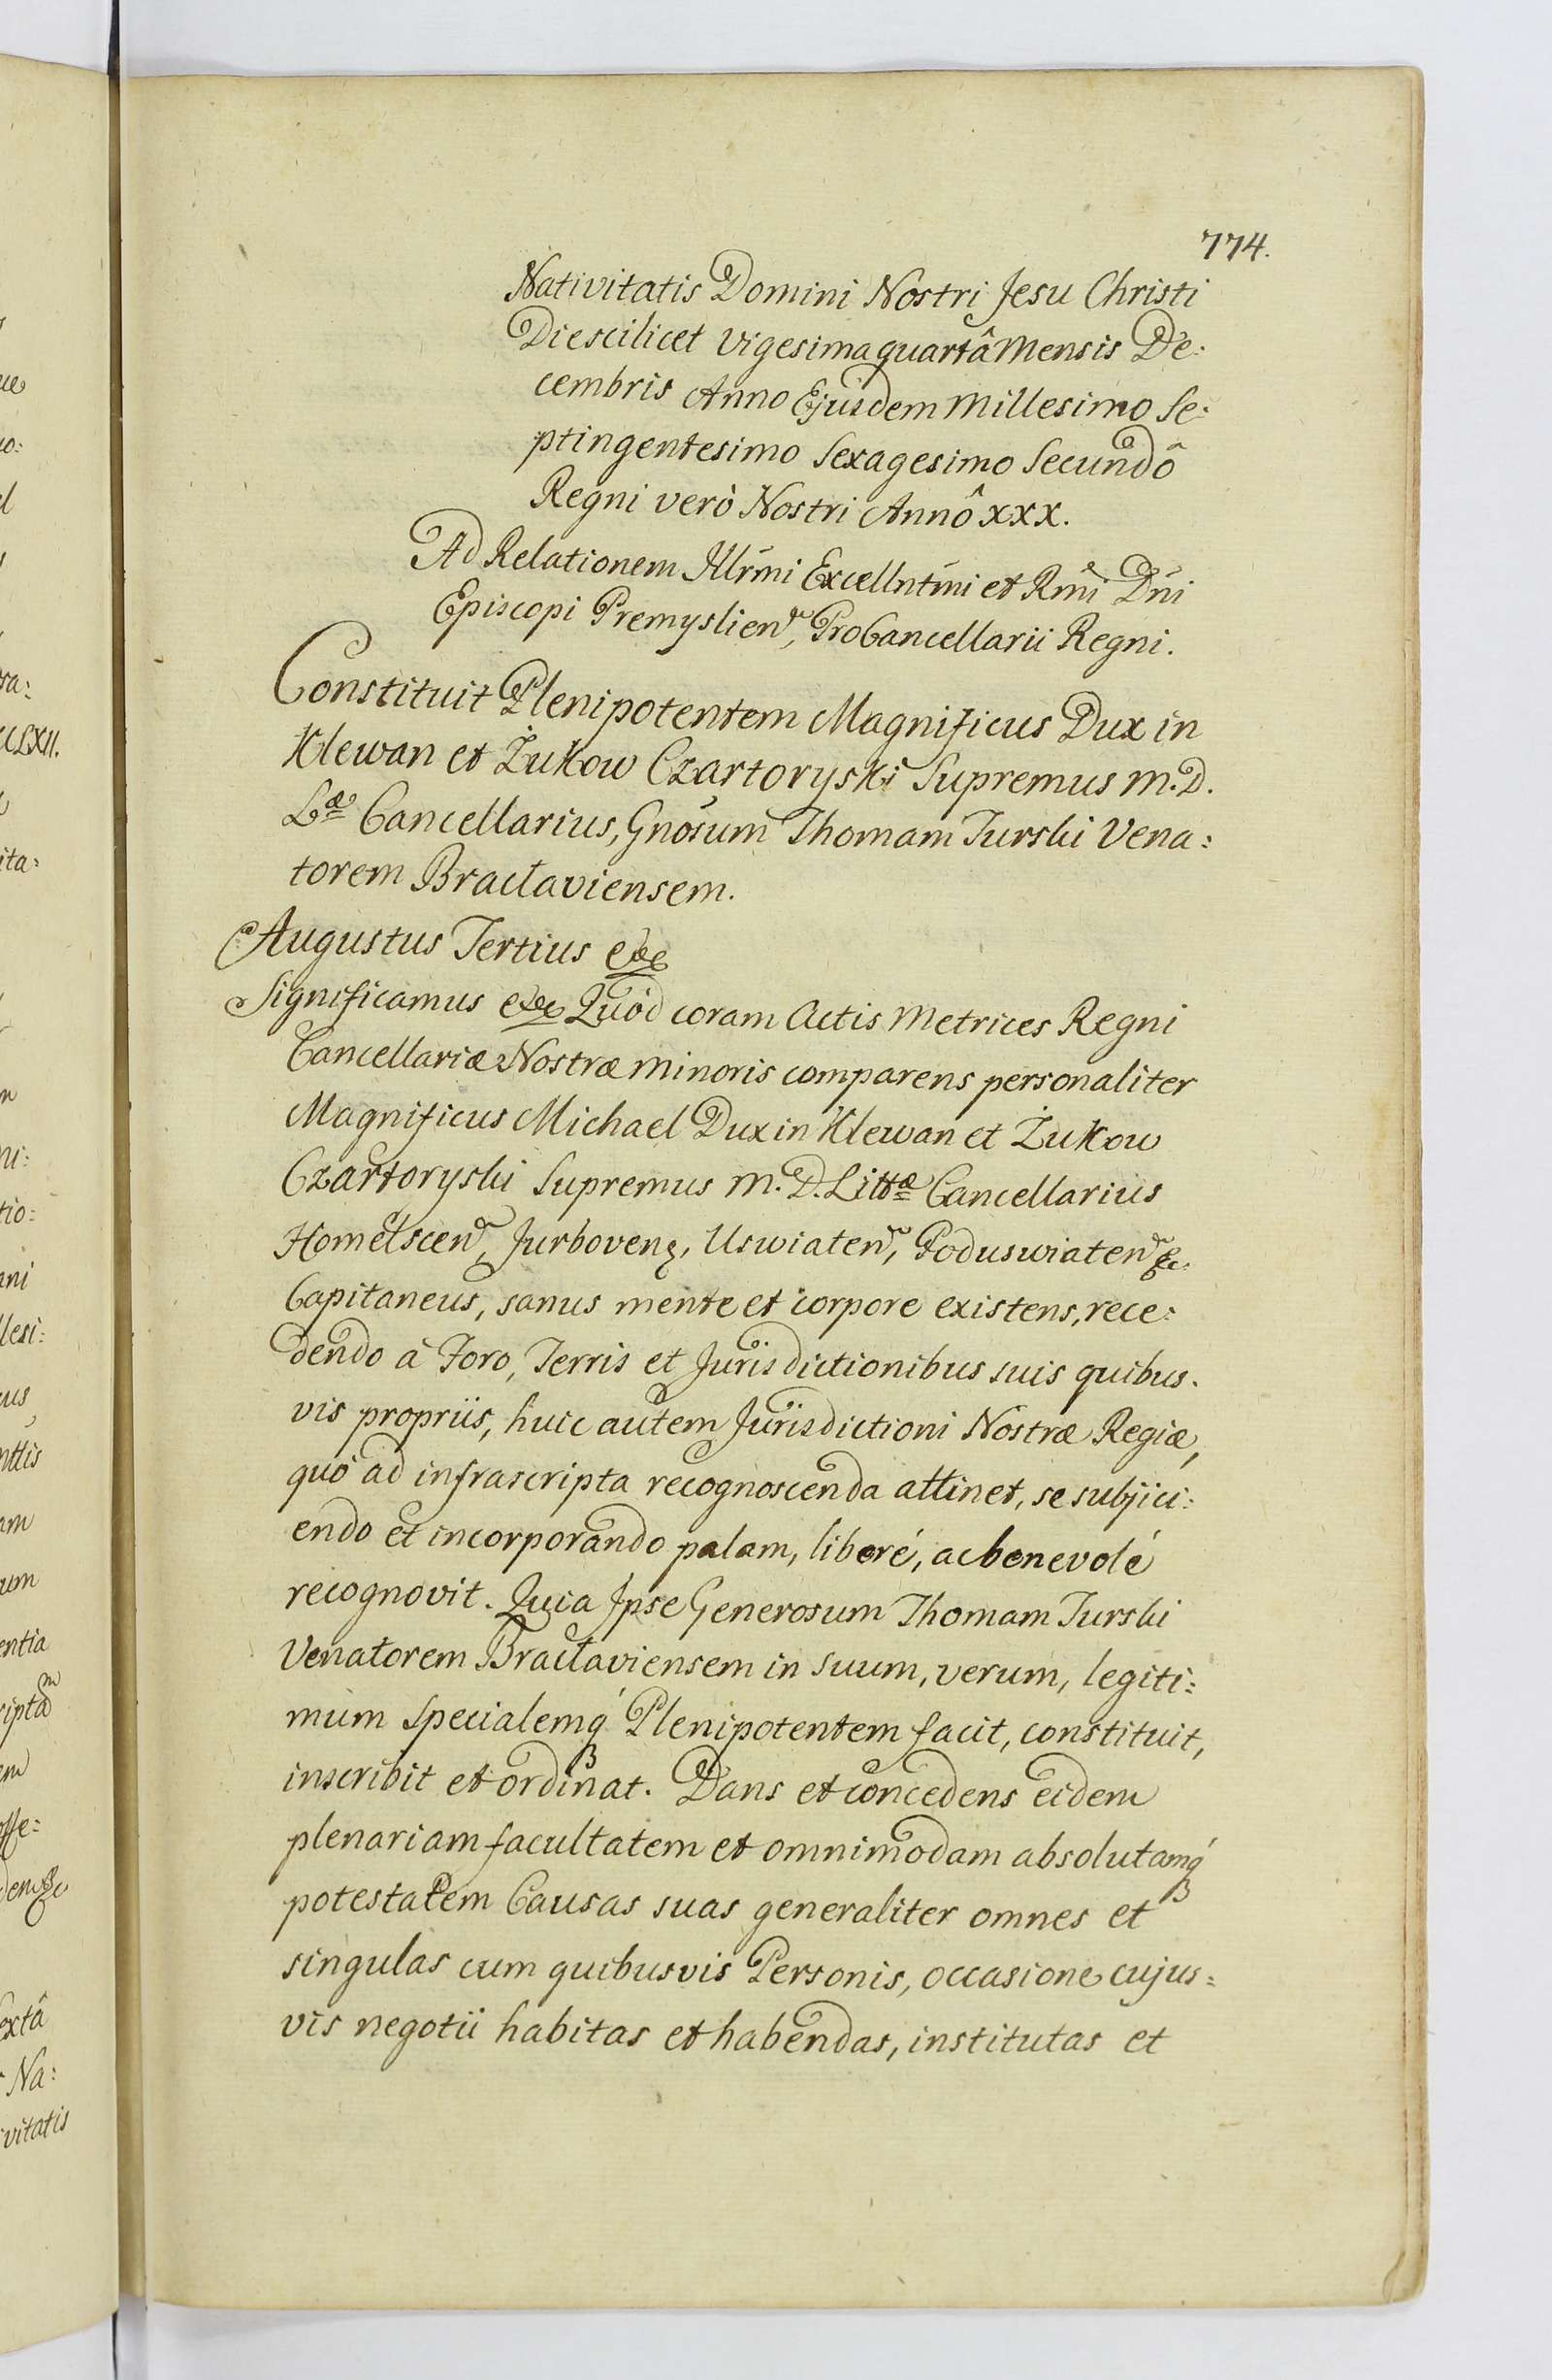 774.
Nativitatis Domini Nostri Jesu Christi
Die scilicet Vigesima quartâ Mensis De:
cembris Anno Ejusdem Millesimo Se:
ptingentesimo Sexagesimo Secundô
Regni verò Nostri Annô XXX.
Ad Relationem Illrmi Excellntmi et Rmi Dni
Episcopi Premyslien, ProCancellarii Regni.
Constituit Plenipotentem Magnificus Dux in
Klewan et Żukow Czartoryski Supremus M.D.
Læ Cancellarius, Gnosum Thomam Turski Vena:
torem Braclaviensem.
Augustus Tertius etc
Significamus etc Quòd coram Actis Metrices Regni
Cancellariæ Nostræ minoris comparens personaliter
Magnificus Michael Dux in Klewan et Żukow
Czartoryski Supremus M.D. Littæ Cancellarius
Homelscen, Jurboven, Uswiaten, Poduswiaten &c.
Capitaneus, sanus mente et corpore existens, rece:
dendo à Foro, Terris et Jurisdictionibus suis quibus.
vis propriis, huic autem Jurisdictioni Nostræ Regiæ,
quò ad infrascripta recognoscenda attinet, se subjici:
endo et incorporando palam, liberé, ac benevolé
recognovit. Quia Ipse Generosum Thomam Turski
Venatorem Braclaviensem in suum, verum, legiti:
mum specialemq́ Plenipotentem facit, constituit,
inscribit et ordinat. Dans et concedens eidem
plenariam facultatem et omnimodam absolutamq́
potestatem Causas suas generaliter omnes et
singulas cum quibusvis Personis, occasione cujus:
vis negotii habitas et habendas, institutas et